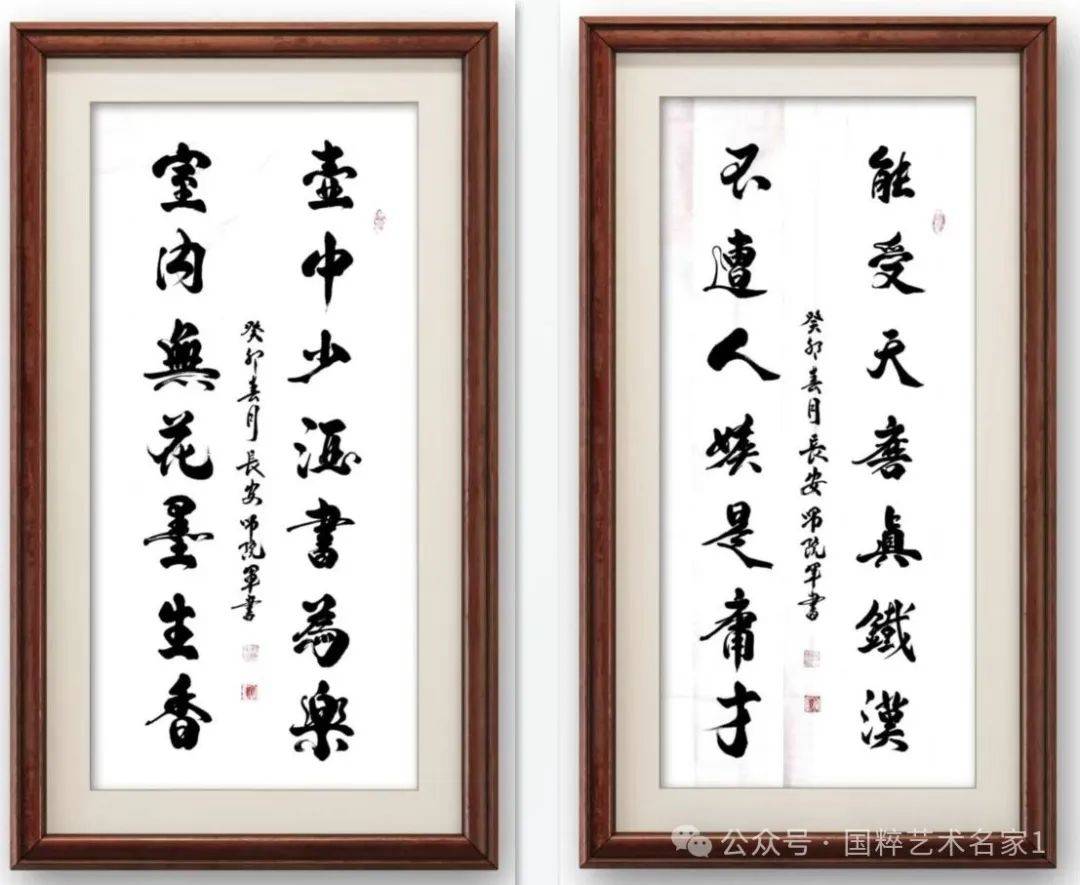 壺中少酒書為樂
室内無花墨生香
癸卯春月長安 院軍書
能受天磨真鐵漢
不遭人嫉是庸才
癸卯春月長安 院軍書
公众号·国粹艺术名家1